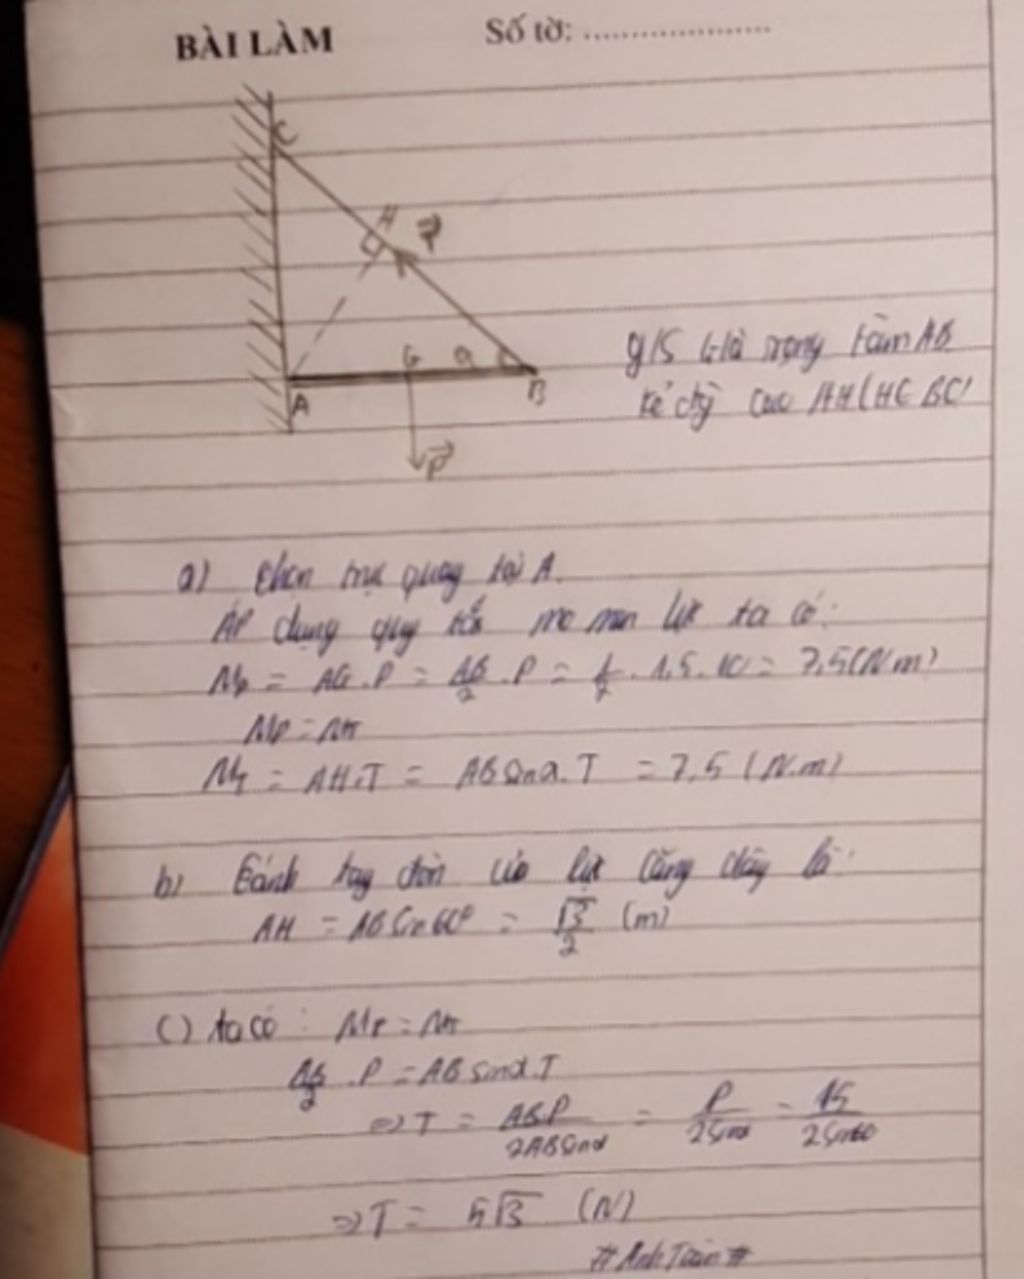 BÀI LÀM Số tờ: ....................
C
H T
G α
A B
P
g/s G là trọng tâm AB
kẻ đg cao AH (H ∈ BC)
a) Chọn trục quay tại A.
Áp dụng quy tắc mo men lực ta có:
Mp = AG.P = AB/2 .P = 1/2 . 1,5.10 = 7,5 (N.m)
Mp = MT
MT = AH.T = AB sinα.T = 7,5 (N.m)
b) Cánh tay đòn của lực căng dây là:
AH = AB sin60° = √3/2 (m)
c) ta có: MP = MT
AB/2 .P = AB sinα.T
=> T = ABP/2ABsinα = P/2sinα = 15/2sin60
=> T = 5√3 (N)
# Anh Toàn #